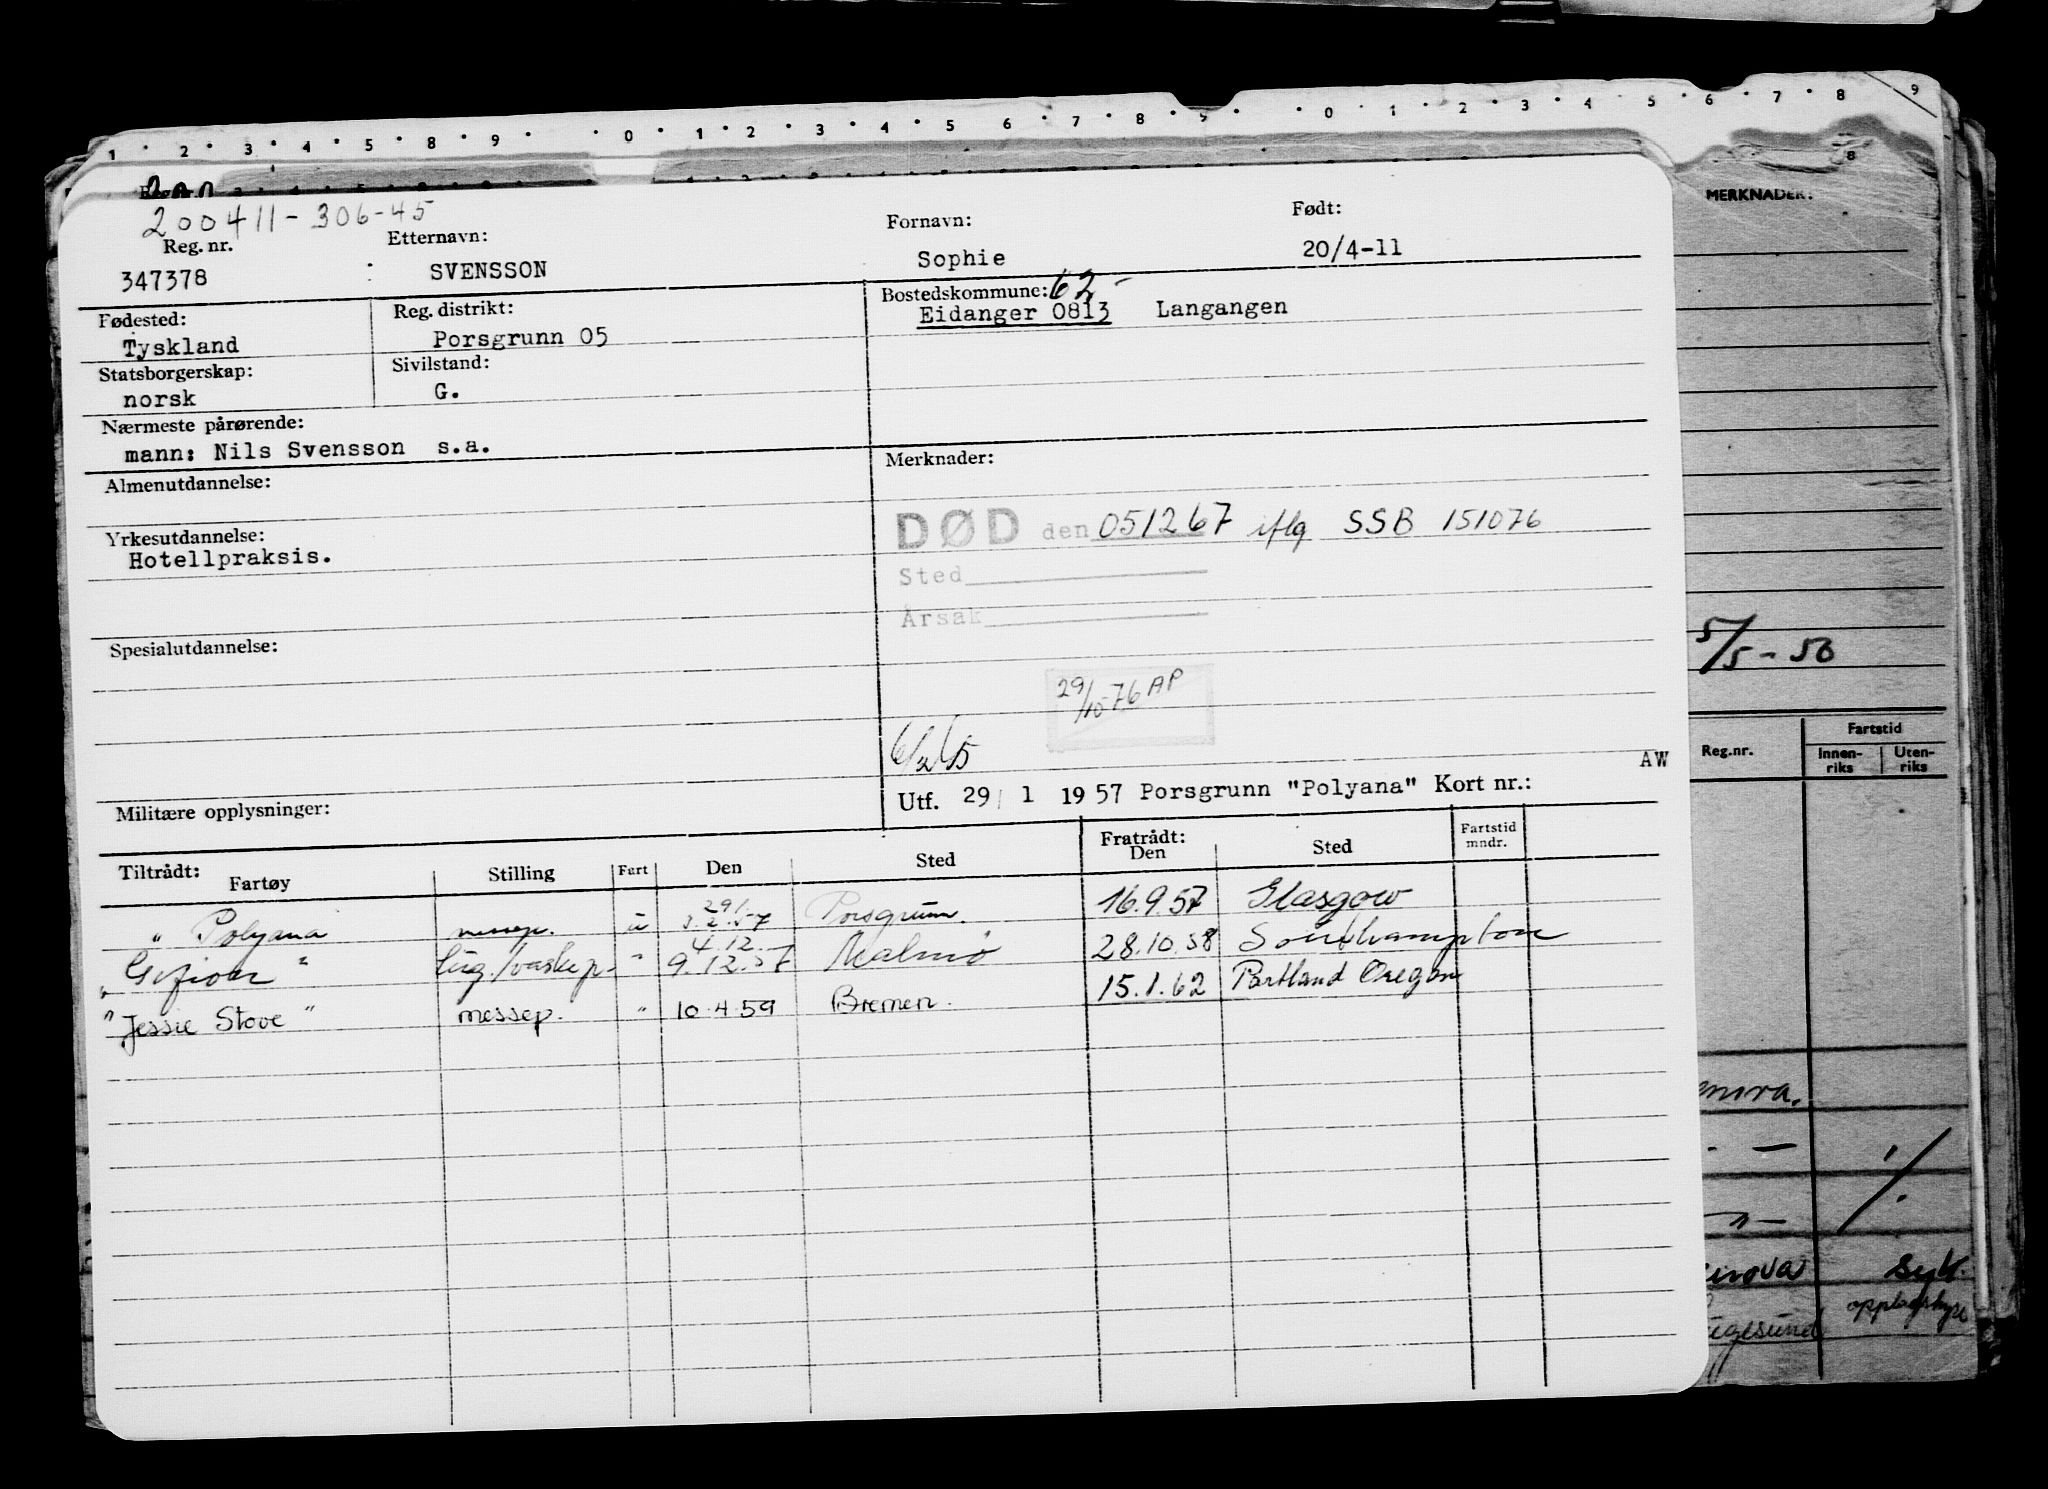 1 2 3 4 5 8 9 0 1 2 3 4 5 6 7 8 9 0 1 2 3 4 5 6 7 8 9
MERKNADER:
200411-306-45
Reg. nr. Etternavn: Fornavn: Født:
347378 SVENSSON Sophie 20/4-11
Fødested: Reg. distrikt: Bostedskommune: 62
Tyskland Porsgrunn 05 Eidanger 0813 Langangen
Statsborgerskap: Sivilstand:
norsk G.
Nærmeste pårørende:
mann: Nils Svensson s.a.
Almenutdannelse: Merknader:
Yrkesutdannelse: DØD den 051267 iflg SSB 151076
Hotellpraksis.
Sted
Årsak
Spesialutdannelse:
5/5-50
29/10-76 AP
Reg.nr. Fartstid
Innen-riks Uten-riks
AW
Militære opplysninger: Utf. 29/ 1 1957 Porsgrunn "Polyana" Kort nr.:
Tiltrådt: Fratrådt: Fartstid mndr.
Fartøy Stilling Fart Den Sted Den Sted
29/1
" Polyana messep. u 3.2.57 Porsgrunn. 16.9.57 Glasgow
4.12.
"Gefion" lug./vaskep. " 9.12.57 Malmø 28.10.58 Southampton
"Jessie Stove" messep. " 10.4.59 Bremen. 15.1.62 Portland Oregon